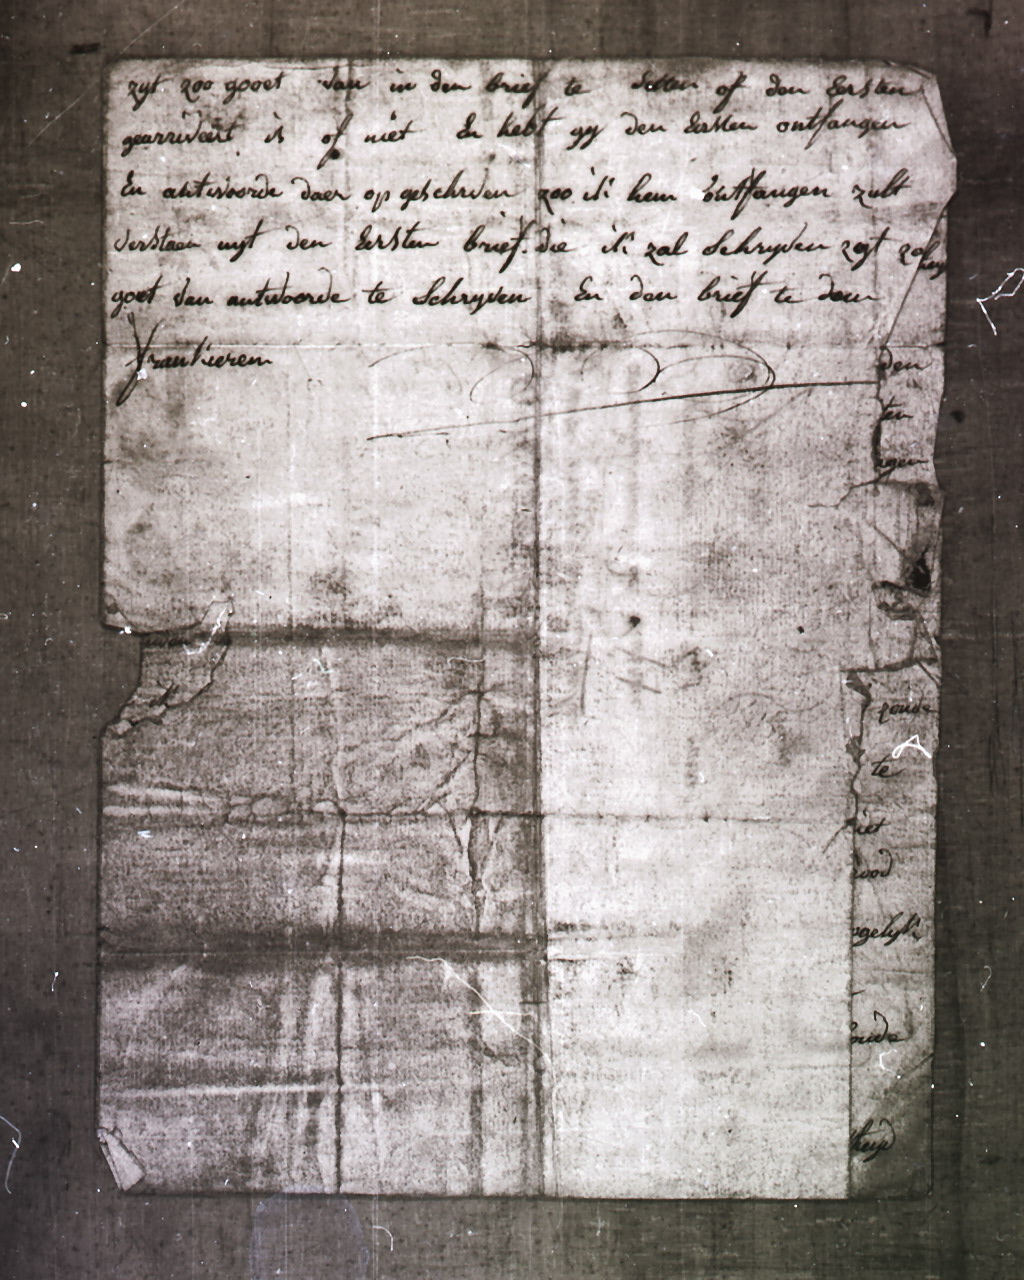 zyt zoo goet van in den brief te setten of den Eersten
gearriveert is of niet En hebt gy den Eersten ontfangen
En antwoorde daer op geschreven zoo ik hem ontfangen zult
verstaen uyt den Eersten brief die ik zal Schryven zyt zoo
goet van antwoorde te Schryven En den brief te doen
frankieren
den
ten
zoude
te
iet
ood
ogelyk
oude
heyd